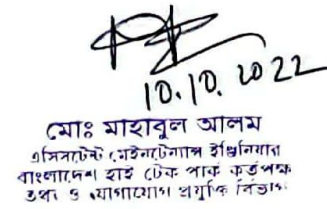 10.10.2022
মোঃ মাহাবুল আলম
এসিসটেন্ট মেইনটেন্যান্স ইঞ্জিনিয়ার
বাংলাদেশ হাই টেক পার্ক কর্তৃপক্ষ
তথ্য ও যোগাযোগ প্রযুক্তি বিভাগ